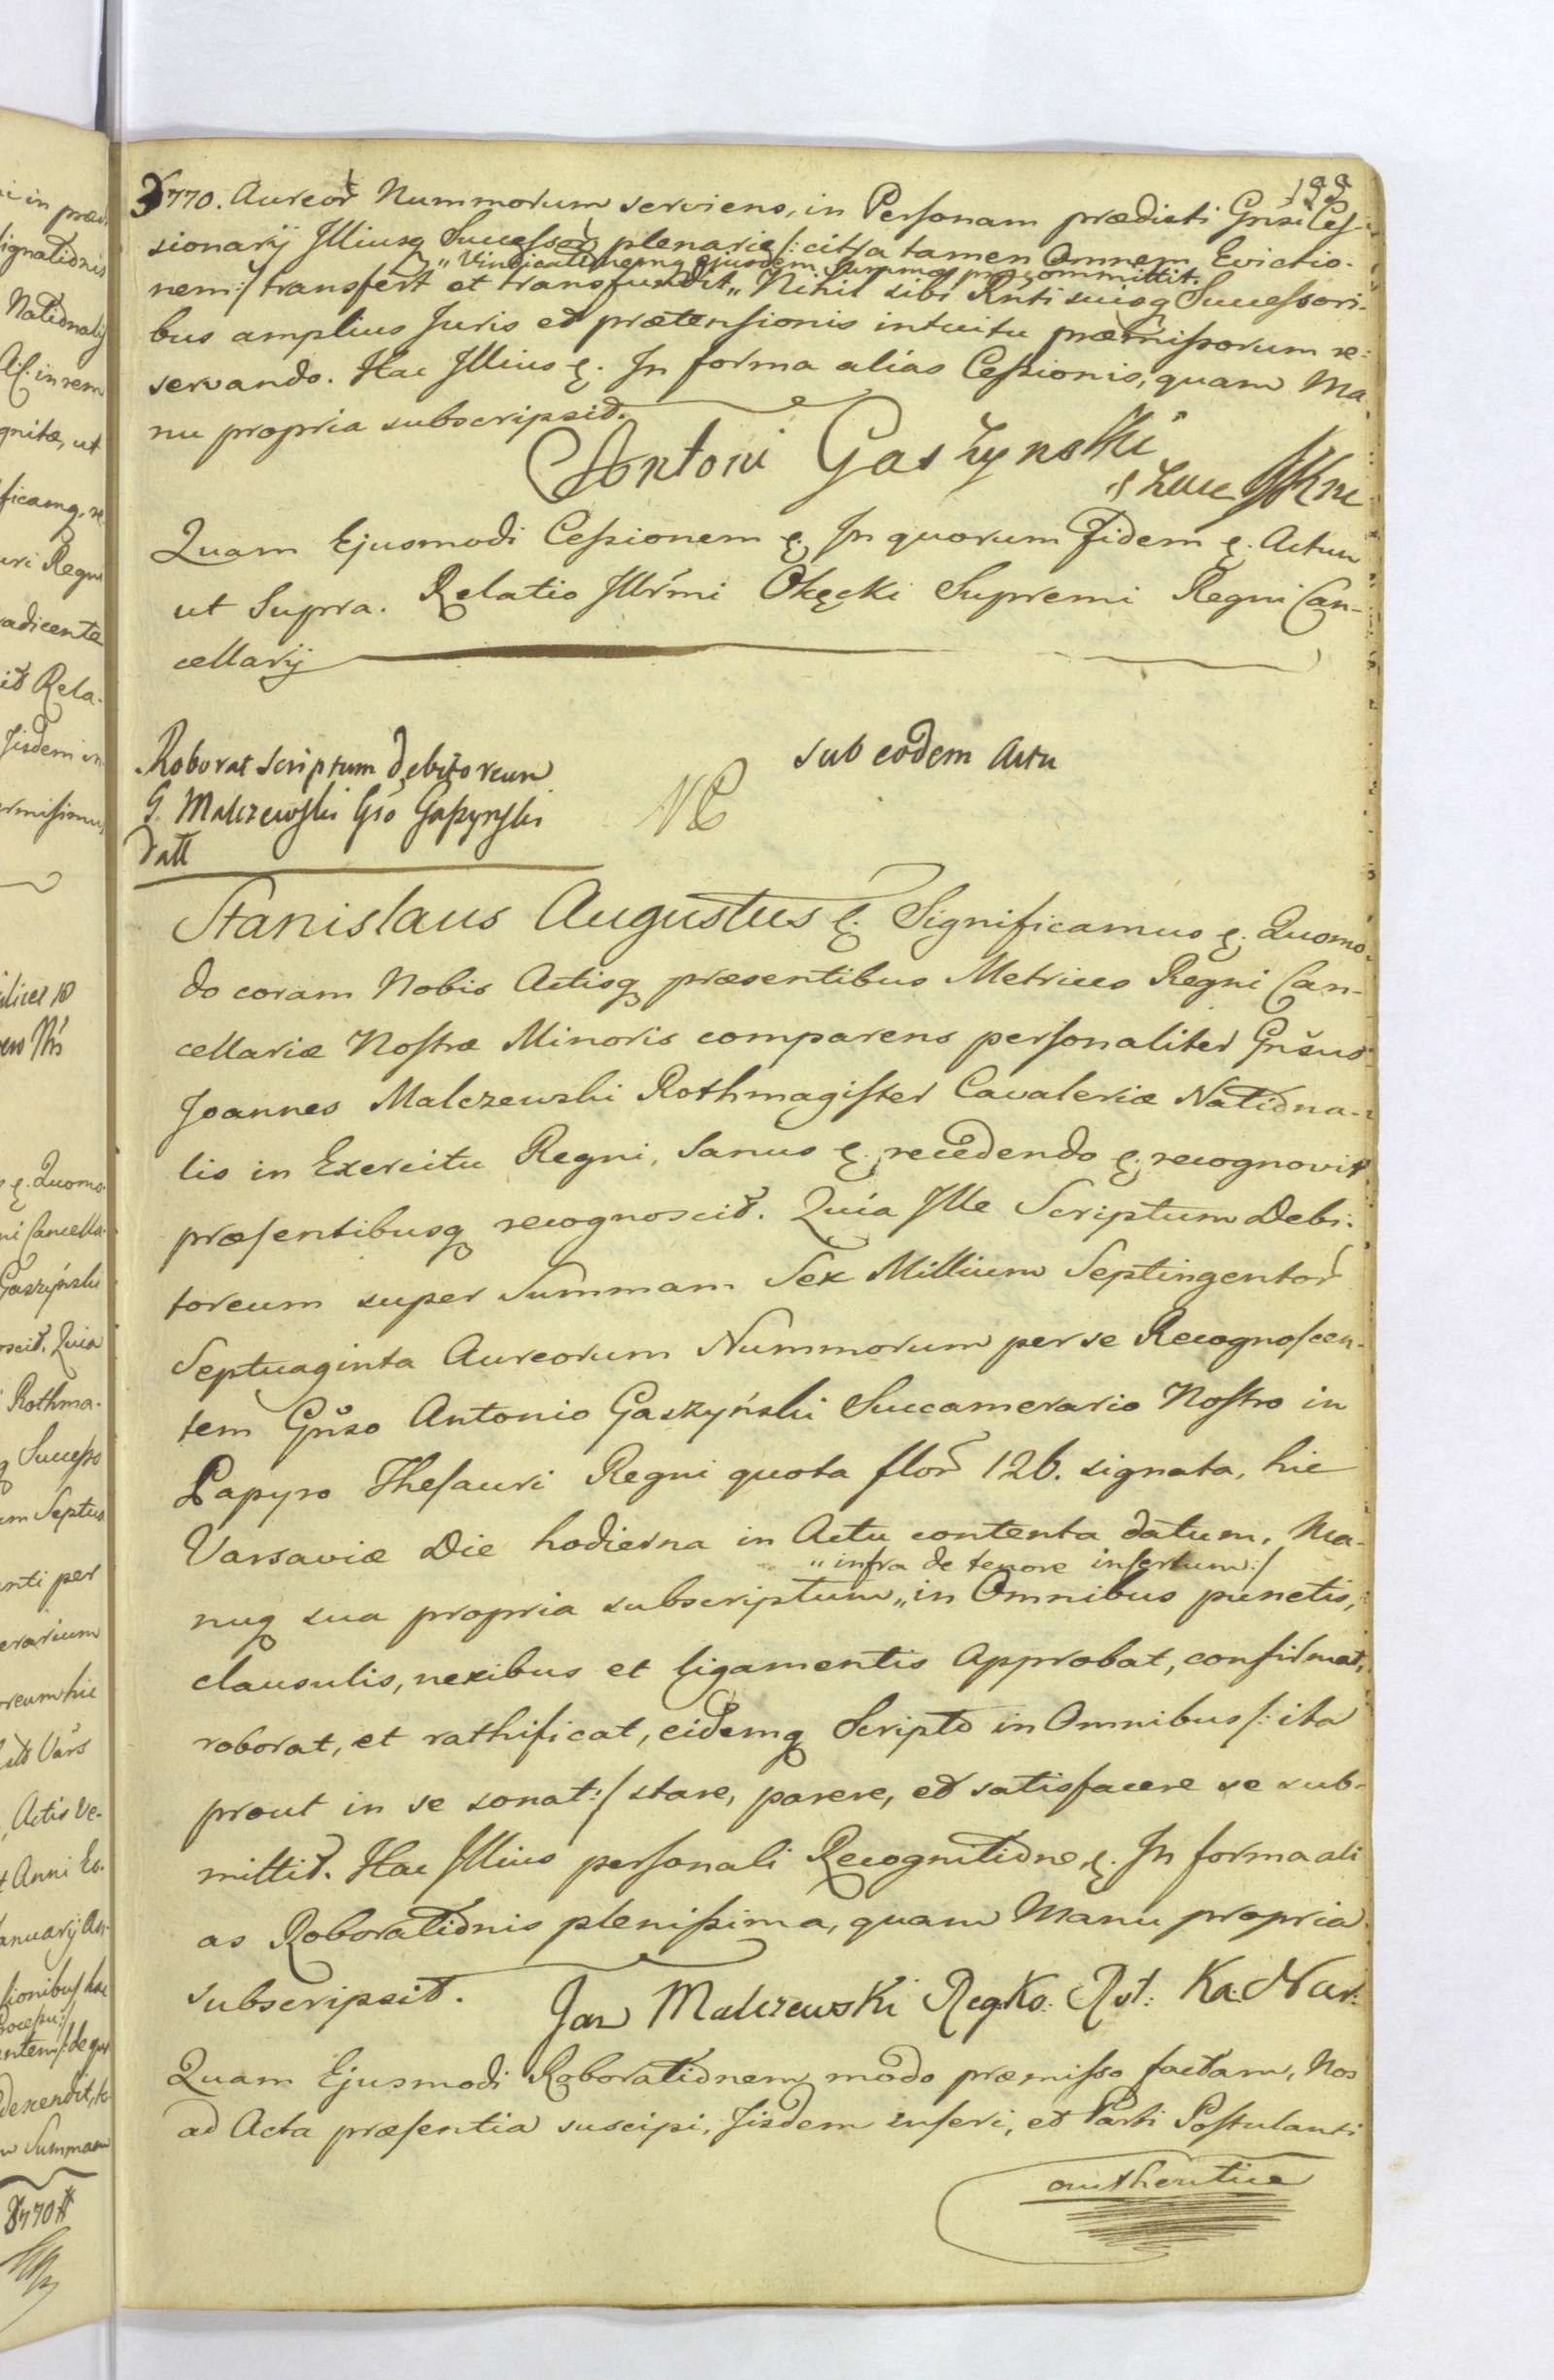 199
3770. Aureor Nummorum serviens, in Personam prædicti Gnsi Ces-
sionarij Illiusq Successor plenarie /: citra tamen Omnem Evictio-
„Vindicationemq ejusdem Summæ committit.
nem :/ transfert et transfundit „ Nihil sibi Rnti suisq Successori-
bus amplius Juris et prætensionis intuitu præmissorum re-
servando. Hac Illius &. In forma alias Cessionis, quam Ma-
nu propria subscripsit.
Antoni Gaszynski
Quam Ejusmodi Cessionem &. In quorum Fidem &. Actum
ut Supra. Relatio Illrmi Okęcki Supremi Regni Can-
cellarij
Roborat scriptum debitoreum sub eodem Actu
G. Malczewski Gso Gaszynski
datt
Stanislaus Augustus &. Significamus &. Quomo-
do coram Nobis Actisq præsentibus Metrices Regni Can-
cellariæ Nostræ Minoris comparens personaliter Gnsus
Joannes Malczewski Rothmagister Cavaleriæ Nationa-
lis in Exercitu Regni, Sanus &. recedendo &. recognovit
præsentibusq recognoscit. Quia Ille Scriptum Debi-
toreum super Summam Sex Millium Septingentor
Septuaginta Aureorum Nummorum per se Recognoscen-
tem Gnso Antonio Gaszyński Succamerario Nostro in
Papyro Thesauri Regni quota flor 126. signata, hic
Varsaviæ Die hodierna in Actu contenta datum, Ma-
„infra de tenore insertum :/
nuq sua propria subscriptum „ in Omnibus punctis,
clausulis, nexibus et ligamentis Approbat, confirmat,
roborat, et rathificat, eidemq Scripto in Omnibus /: ita
prout in se sonat :/ stare, parere, et satisfacere se sub-
mittit. Hac Illius personali Recognitione, &. In forma ali
as Roborationis plenissima, quam Manu propria
subscripsit. Jan Malczewski Reg. Ko: Rot: Ka: Nar:
Quam Ejusmodi Roborationem modo præmisso factam, Nos
ad Acta præsentia suscipi, Iisdem inseri, et Parti Postulanti
authentice